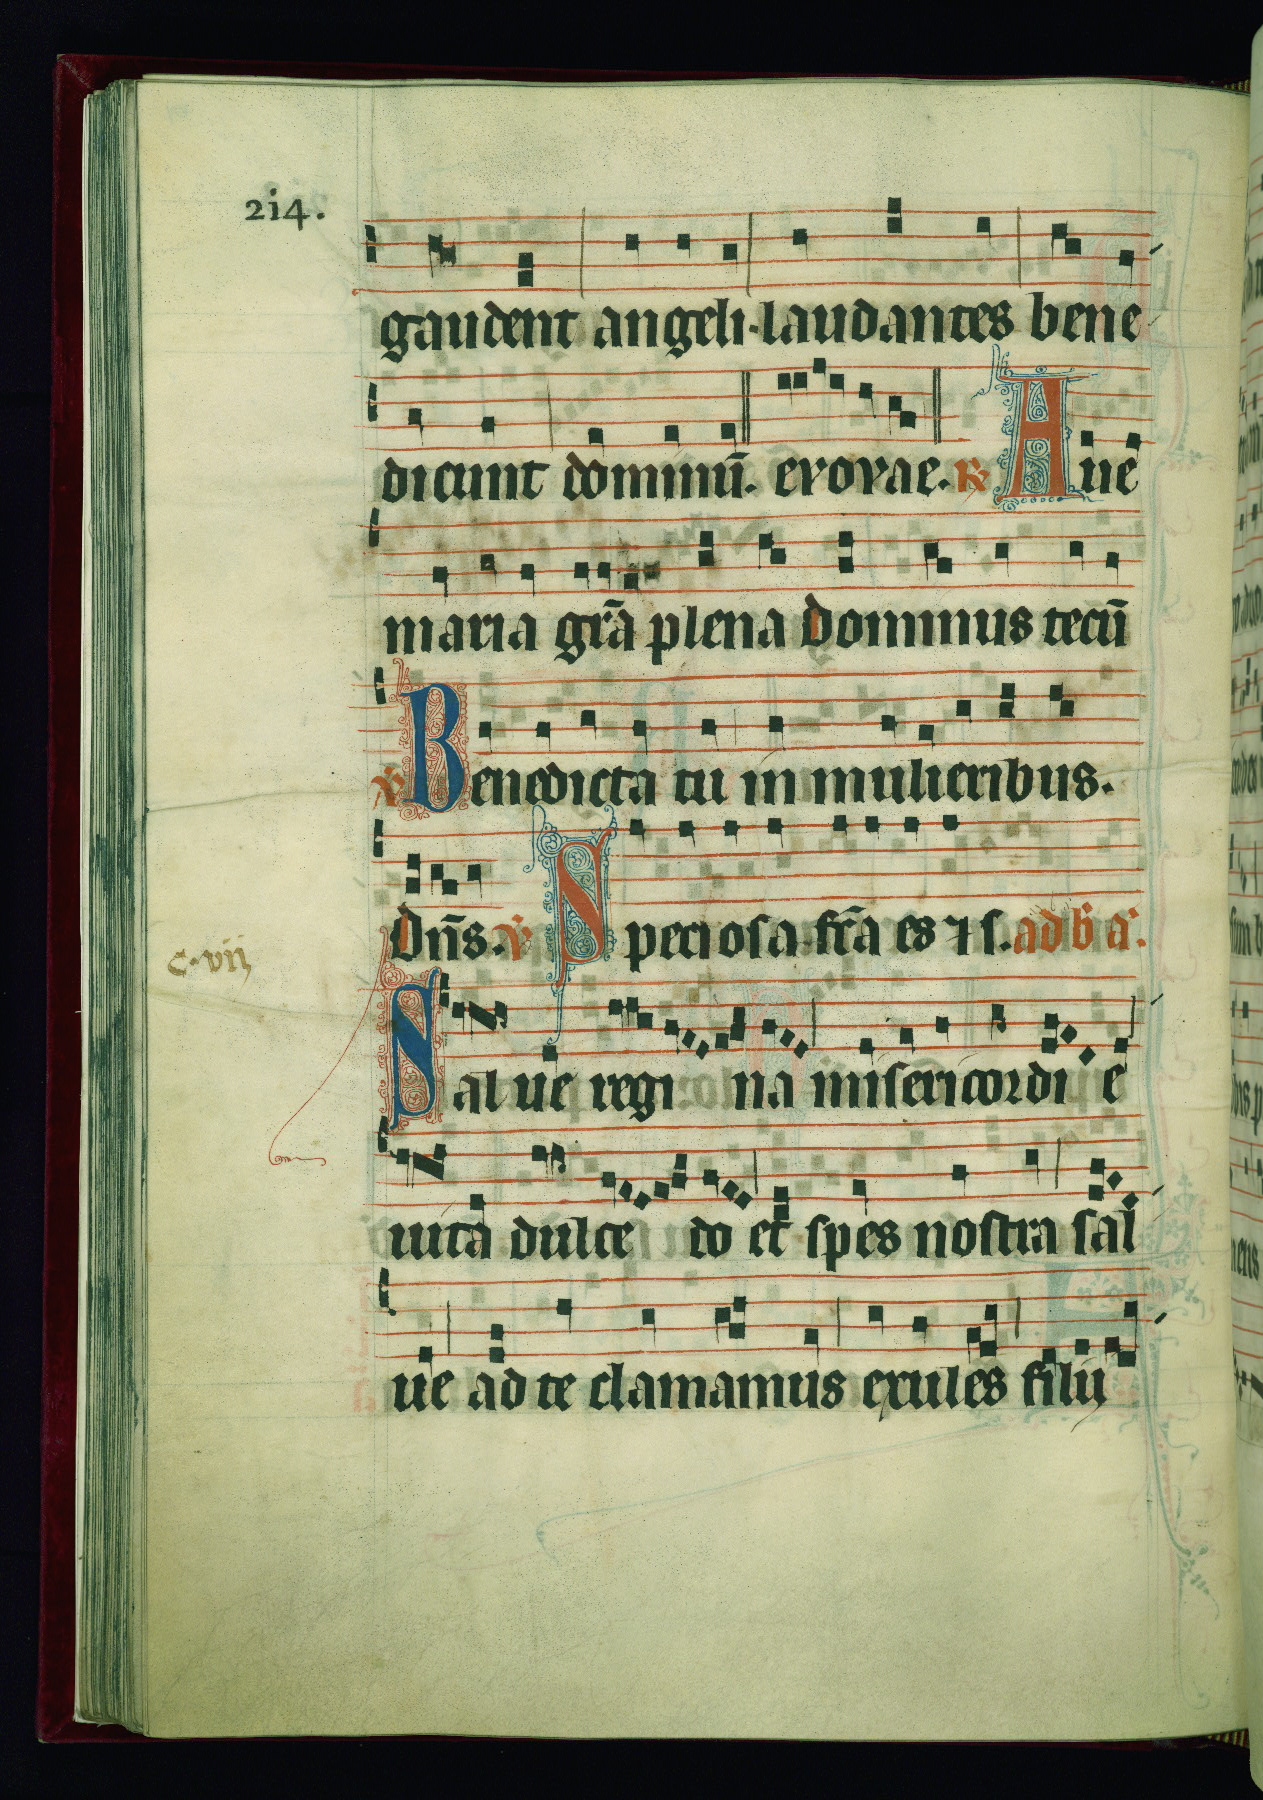 214.
gaudent angeli·laudantes bene
dicunt dominū. evovae. R Aue
maria grā plena dominus tecū
V Benedicta tu in mulieribus.
Dn̄s. V Speciosa fc̄a es ⁊ s. ad b a.
c·vij
Salue regi na misericordi e
uita dulce do et spes nostra sal
ue ad te clamamus exules filij